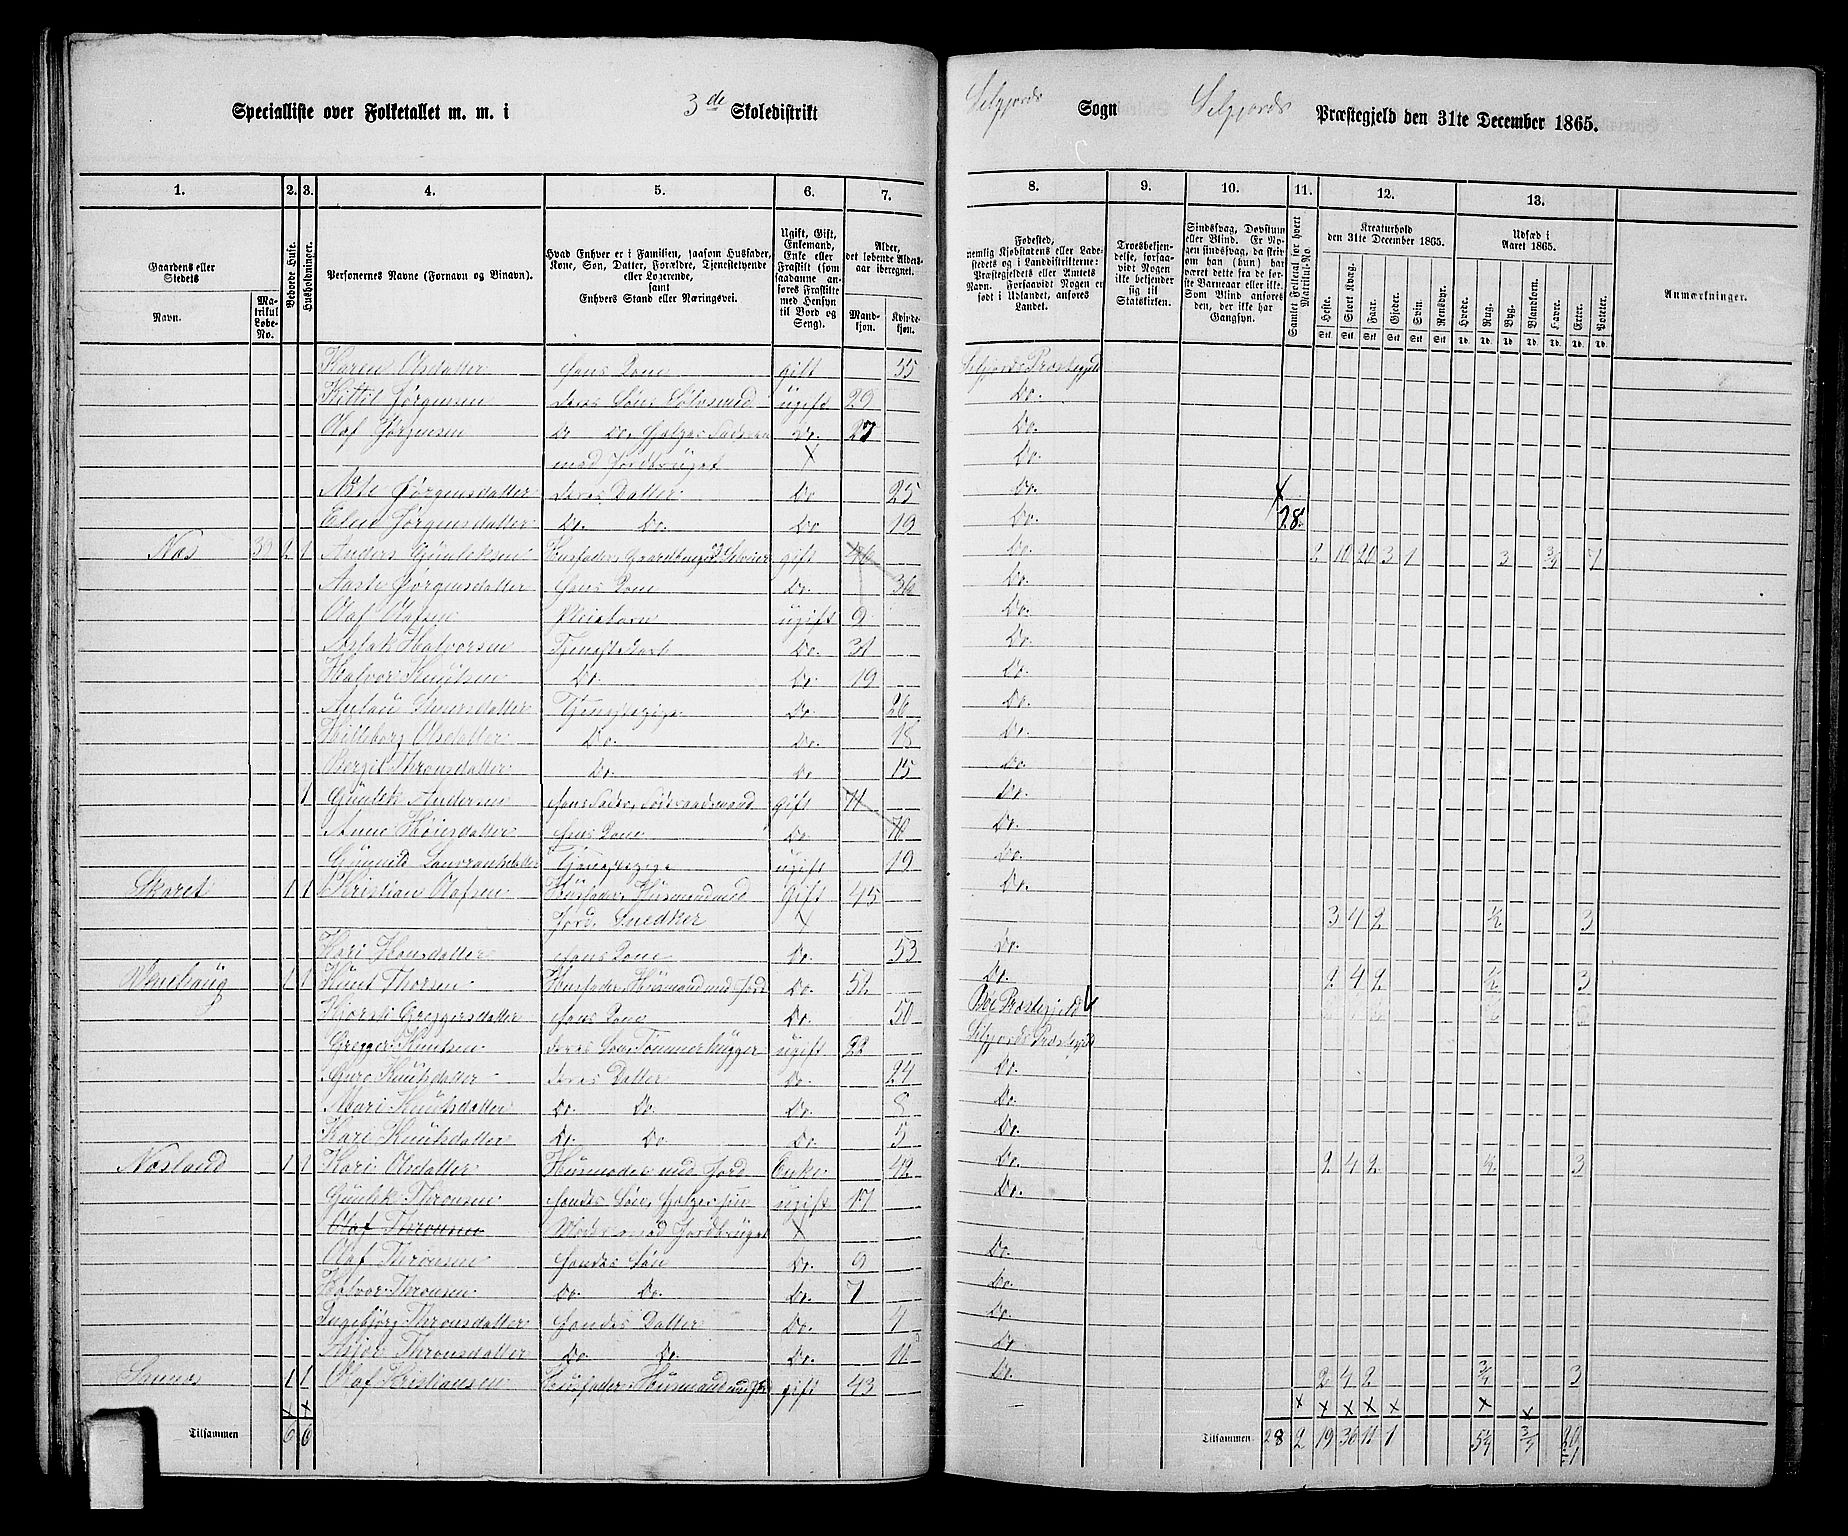 Specialliste over Folketallet m. m. i 3de Skoledistrikt
Seljords Sogn Seljords Præstegjeld den 31te December 1865.
1. 2. 3. 4. 5. 6. 7.
8. 9. 10. 11. 12. 13.
Gaardens eller Stedets Navn. Matrikul Løbe-No. Beboede Huse. Husholdninger.
Personernes Navne (Fornavn og Binavn).
Hvad Enhver er i Familien, saasom Husfader, Kone, Søn, Datter, Forældre, Tjenestetyende eller Logerende, samt Enhvers Stand eller Næringsvei.
Ugift, Gift, Enkemand, Enke eller Fraskilt (som saadanne anføres Fraskilte med Hensyn til Bord og Seng).
Alder, det løbende Aldersaar iberegnet. Mandkjøn. Kvindekjøn.
Fødested, nemlig Kjøbstadens eller Ladestedets og i Landdistrikterne: Præstegjeldets eller Amtets Navn. Forsaavidt Nogen er født i Udlandet, anføres Landet.
Troesbekjendelse, forsaavidt Nogen ikke bekjender sig til Statskirken.
Sindssvag, Døvstum eller Blind. Er Nogen sindssvag, da skriv om han (hun) har været dette fra de første Barneaar eller ikke. Som Blind anføres den, der ikke har Gangsyn.
Samlet Folketal for hvert Matrikul-No.
Kreaturhold den 31te December 1865. Heste. Stort Kvæg. Faar. Gjeder. Svin. Rensdyr.
Udsæd i Aaret 1865. Hvede. Rug. Byg. Blandkorn. Havre. Erter. Poteter.
Anmærkninger.
Karen Olsdatter hans Kone gift 55 Seljords Præstegjeld
Kittil Jørgensen deres Søn, Sølvsmed ugift 29 Do.
Olaf Jørgensen Do Do, hjelper Faderen Do. 27 Do.
med Jordbruget X Do.
Aste Jørgensdatter deres Datter Do 25 Do.
Elen Jørgensdatter Do. Do. Do 19 Do. 28
Næs 1 1 Anders Gunleksen Husfader, Gaardbruger Selveier gift 46 Do. 2 10 20 3 1 3 3/4 7
Aaste Jørgensdatter hans Kone Do. 36 Do.
Olaf Olafsen Pleiebarn ugift 9 Do.
Aslak Halvorsen Tjenestekarl Do. 31 Do.
Halvor Knutsen Do. Do. 19 Do.
Do. 26 Do.
Olsdatter Do. Do. 18 Do.
Bergit Thronsdatter Do. Do 15 Do.
1 Gunlek Andersen hans Fader, Føderaadsmand gift 71 Do.
Anne hans Kone Do. 70 Do.
Gunild Tjenestepige ugift 19 Do.
Skaret 1 1 Kristian Olafsen Husfader, Husmand med gift 45 Do.
Jord, Snedker X 3 4 2 1/2 3
Kari Hansdatter hans Kone Do. 53 Do.
1 1 Knut Thorsen Husfader, Husmand med Jord Do. 52 Do. 2 4 2 1/2 3
Greggersdatter hans Kone Do. 50 Bøe Præstegjeld
Gregger Knutsen deres Søn, Tømmerhugger ugift 22 Seljords Præstegjeld
Knutsdatter deres Datter Do. 24 Do.
Mari Knutsdatter Do. Do. Do. 8 Do.
Kari Knutsdatter Do. Do. Do. 5 Do.
Næsland 1 1 Kari Olsdatter Husmoder med Jord Enke 42 Do. 2 4 2 3
Gunlek Thronsen hendes Søn, hjelper sin ugift 17 Do.
Olaf Thronsen Moder med Jordbruget X
Olaf Thronsen hendes Søn Do. 9 Do.
Halvor Thronsen Do. Do. Do. 7 Do.
Ingebjørg Thronsdatter hendes Datter Do. 4 Do.
Thronsdatter Do. Do. Do. 11 Do.
1 1 Olaf Kristiansen Husfader, Husmand med Jord gift 43 Do. 2 4 2 3/4 3
Tilsammen 6 6
Tilsammen 28 2 19 36 11 1 5 3/4